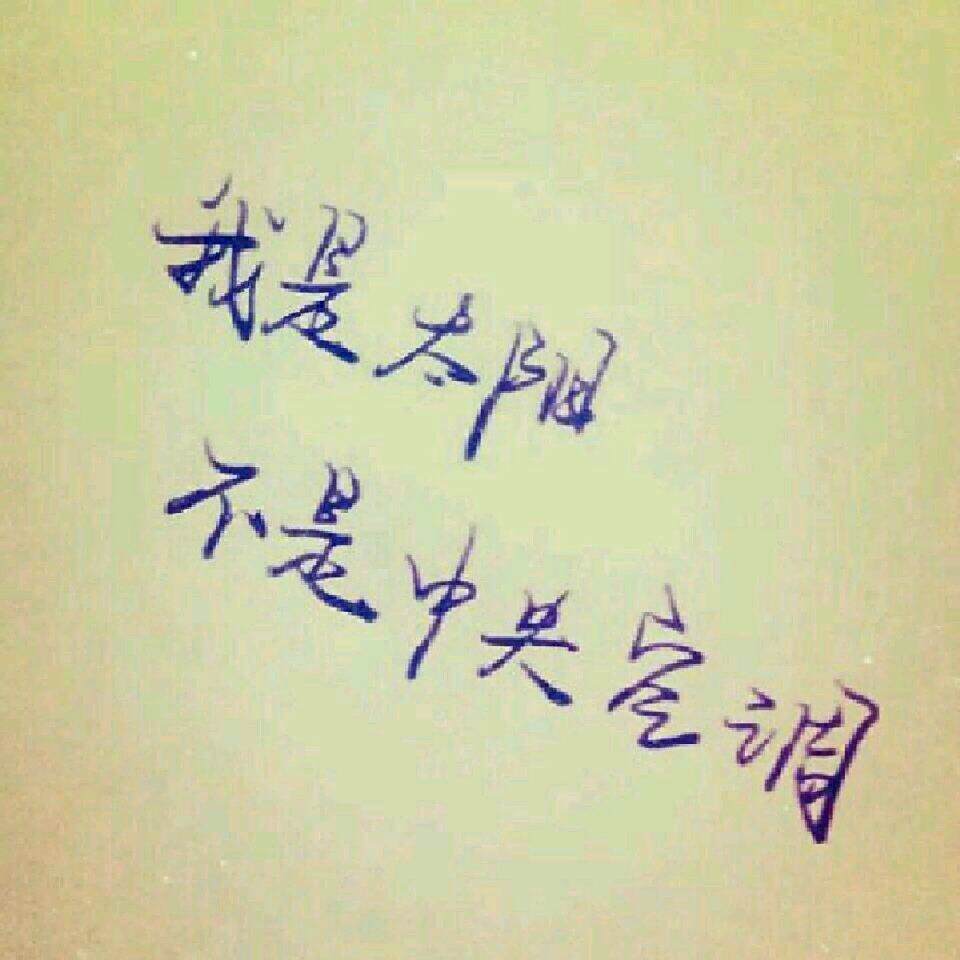 我是太阳
不是中央空调